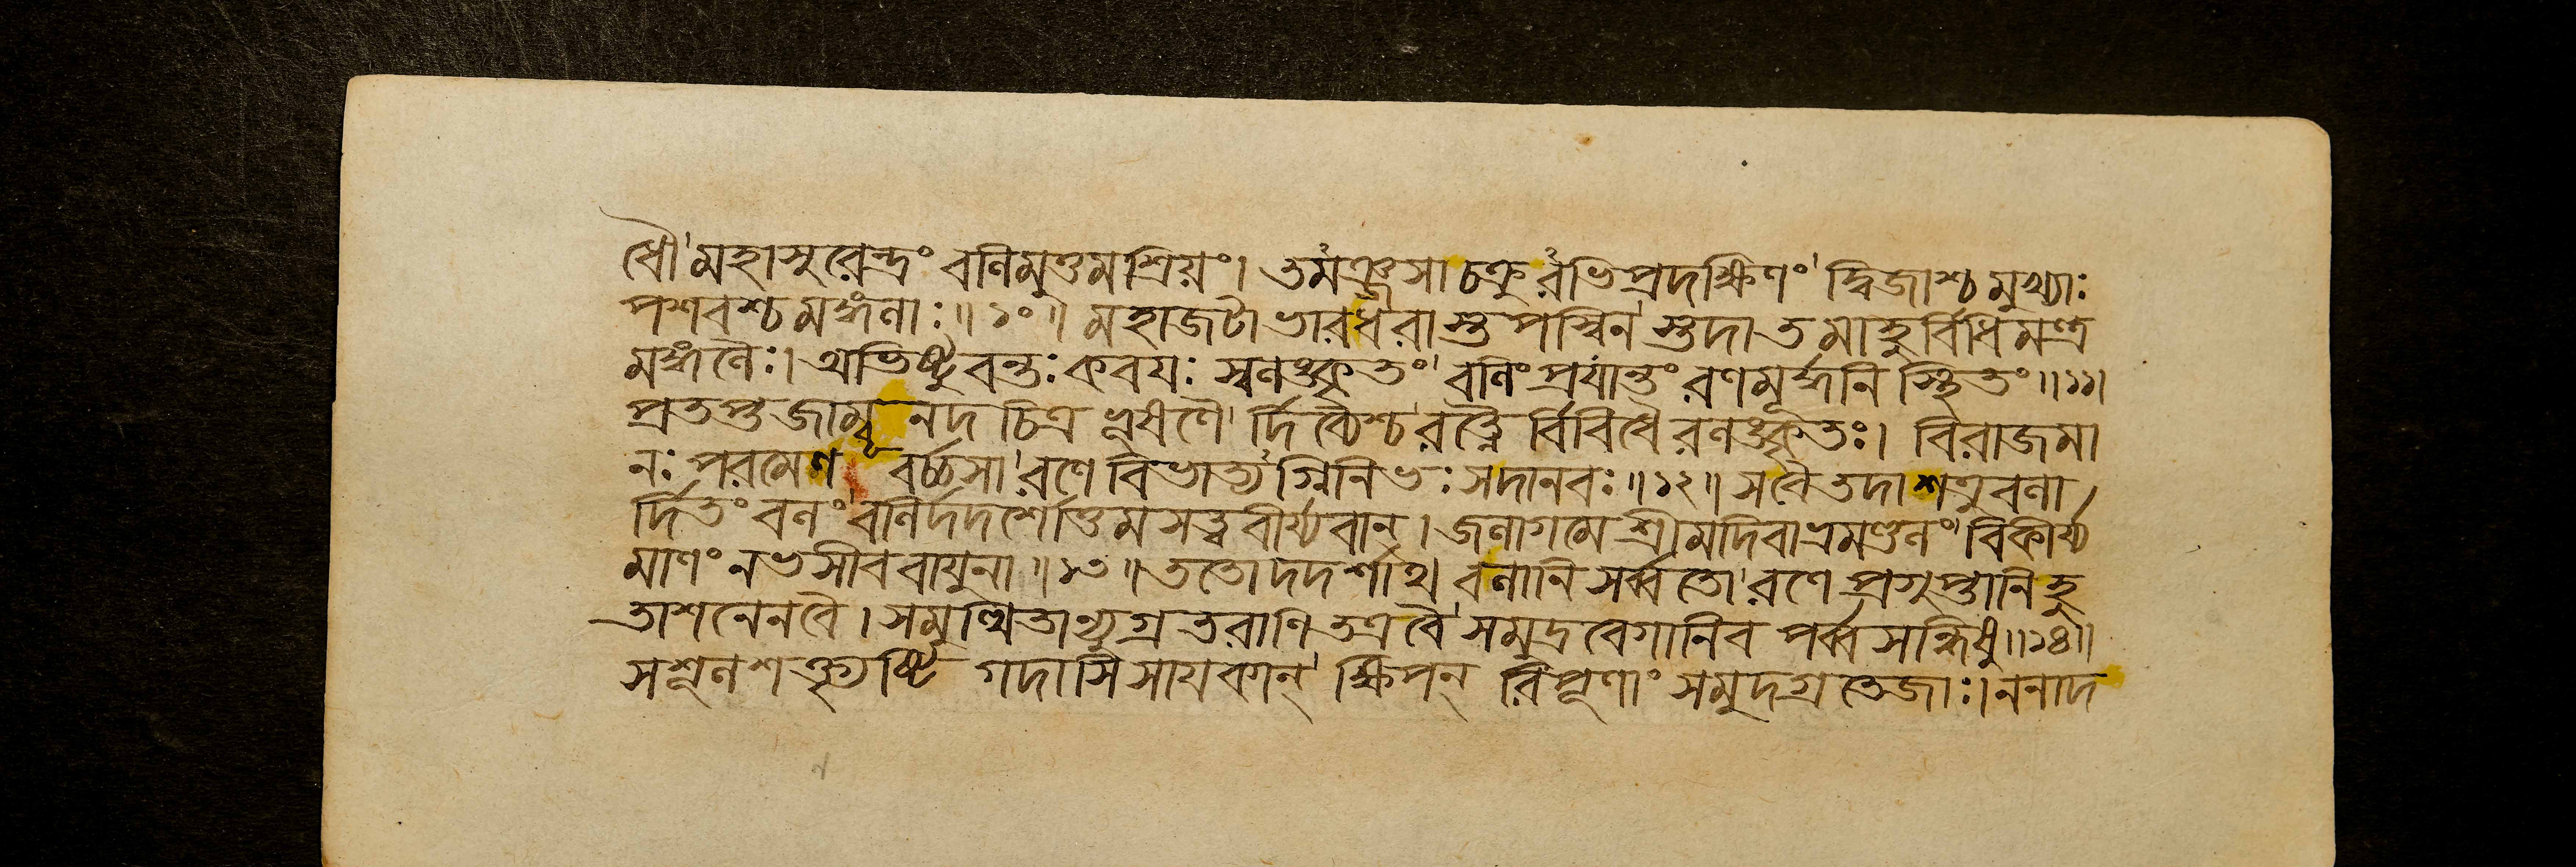 ধৌ মহাসুরেন্দ্রং বলিমুত্তমশ্রিয়ং। তমঞ্জসা চক্রুরভিপ্রদক্ষিণং দ্বিজাশ্চ মুখ্যাঃ
পশবশ্চ মঙ্গলাঃ॥১০॥ মহাজটাভারধরাস্তপস্বিনস্তদা তমাহুর্বিধিমন্ত্র
মঙ্গলৈঃ। অভিষ্টুবন্তঃ কবয়ঃ স্বলঙ্কৃতং বলিং প্রযান্তং রণমূর্দ্ধনি স্থিতং॥১১।
প্রতপ্তজাম্বূনদচিত্রভূষণৈ র্দিব্যৈশ্চ রত্নৈ র্বিবিধৈরলঙ্কৃতঃ। বিরাজমা
নঃ পরমেণ বর্চ্চসা রণে বিভাত্যগ্নিনিভঃ সদানবঃ॥১২॥ সবৈ তদা শত্রুবলা
র্দিতং বলং বলির্দদর্শোত্তমসত্ত্ববীর্য্যবান্। জলাগমে শ্রীমদিবাভ্রমণ্ডলং বিকীর্য্য
মাণং নভসীব বায়ুনা॥১৩॥ ততো দদর্শাথ বলানি সর্ব্বতো রণে প্রগুপ্তানি হু
তাশনেন বৈ। সমুত্থিতান্যুগ্রতরাণি তত্র বৈ সমুদ্রবেগানিব পর্ব্বসন্ধিষু॥১৪॥
সশূলশক্ত্যৃষ্টি গদাসিসায়কান্ ক্ষিপন্ রিপূণাং সমুদগ্রতেজাঃ। ননাদ